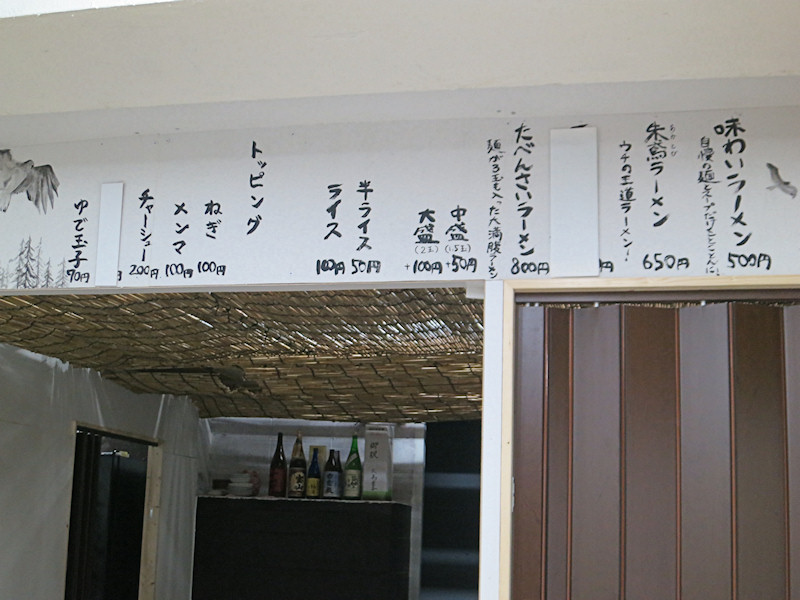 味わいラーメン
500円
朱鷲ラーメン
ウチの王道ラーメン!
650円
円
たべんさいラーメン
麺が3玉も入った大満腹ラーメン
800円
中盛
(1.5玉)
+50円
大盛
(2玉)
+100円
半ライス
50円
ライス
100円
トッピング
ねぎ
100円
メンマ
100円
チャーシュー
200円
ゆで玉子
70円